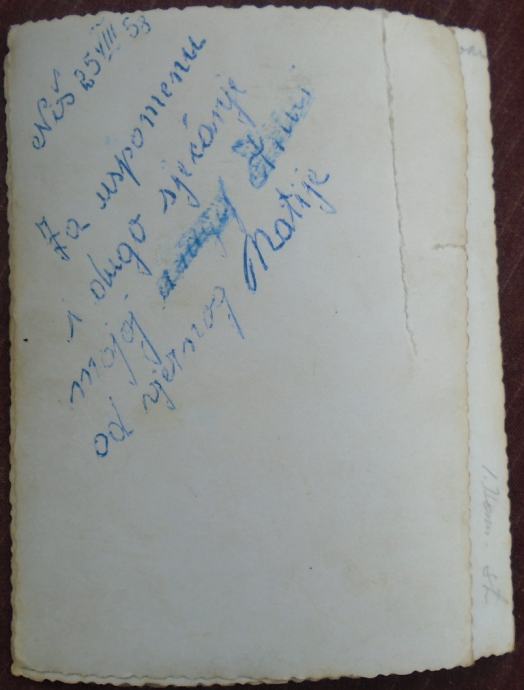 Niš 25 VIII 53
Za uspomenu
i dugo sjećanje
mojoj
od vjernog Matije